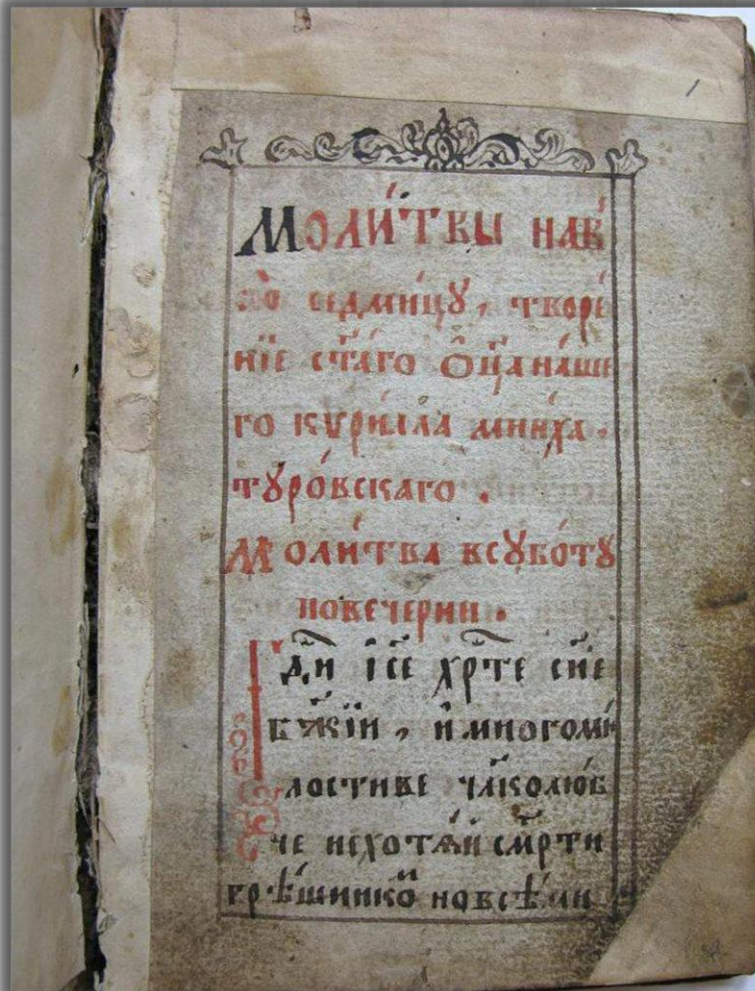 1
Моли́твы нав
сю̀ седми́цу, творе́
нїе ст҃а́го ѻ҆ц҃а на́ше
го кѵри́лла мни́ха.
тꙋро́вскаго.
Моли́тва всꙋбо́тꙋ
повече́рии.
Гдⷭ҇и і҆се хрⷭ҇те сн҃е
бж҃їи, и҆ многоми́
лостиве чл҃колю́б
че нехотѧ́й сме́рти
грѣ́шникоⷨ но всѣ́ми